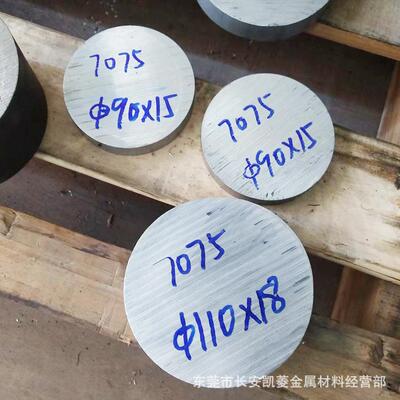 7075
φ90×15
7075
φ90×15
7075
φ110×18
东莞市长安凯菱金属材料经营部